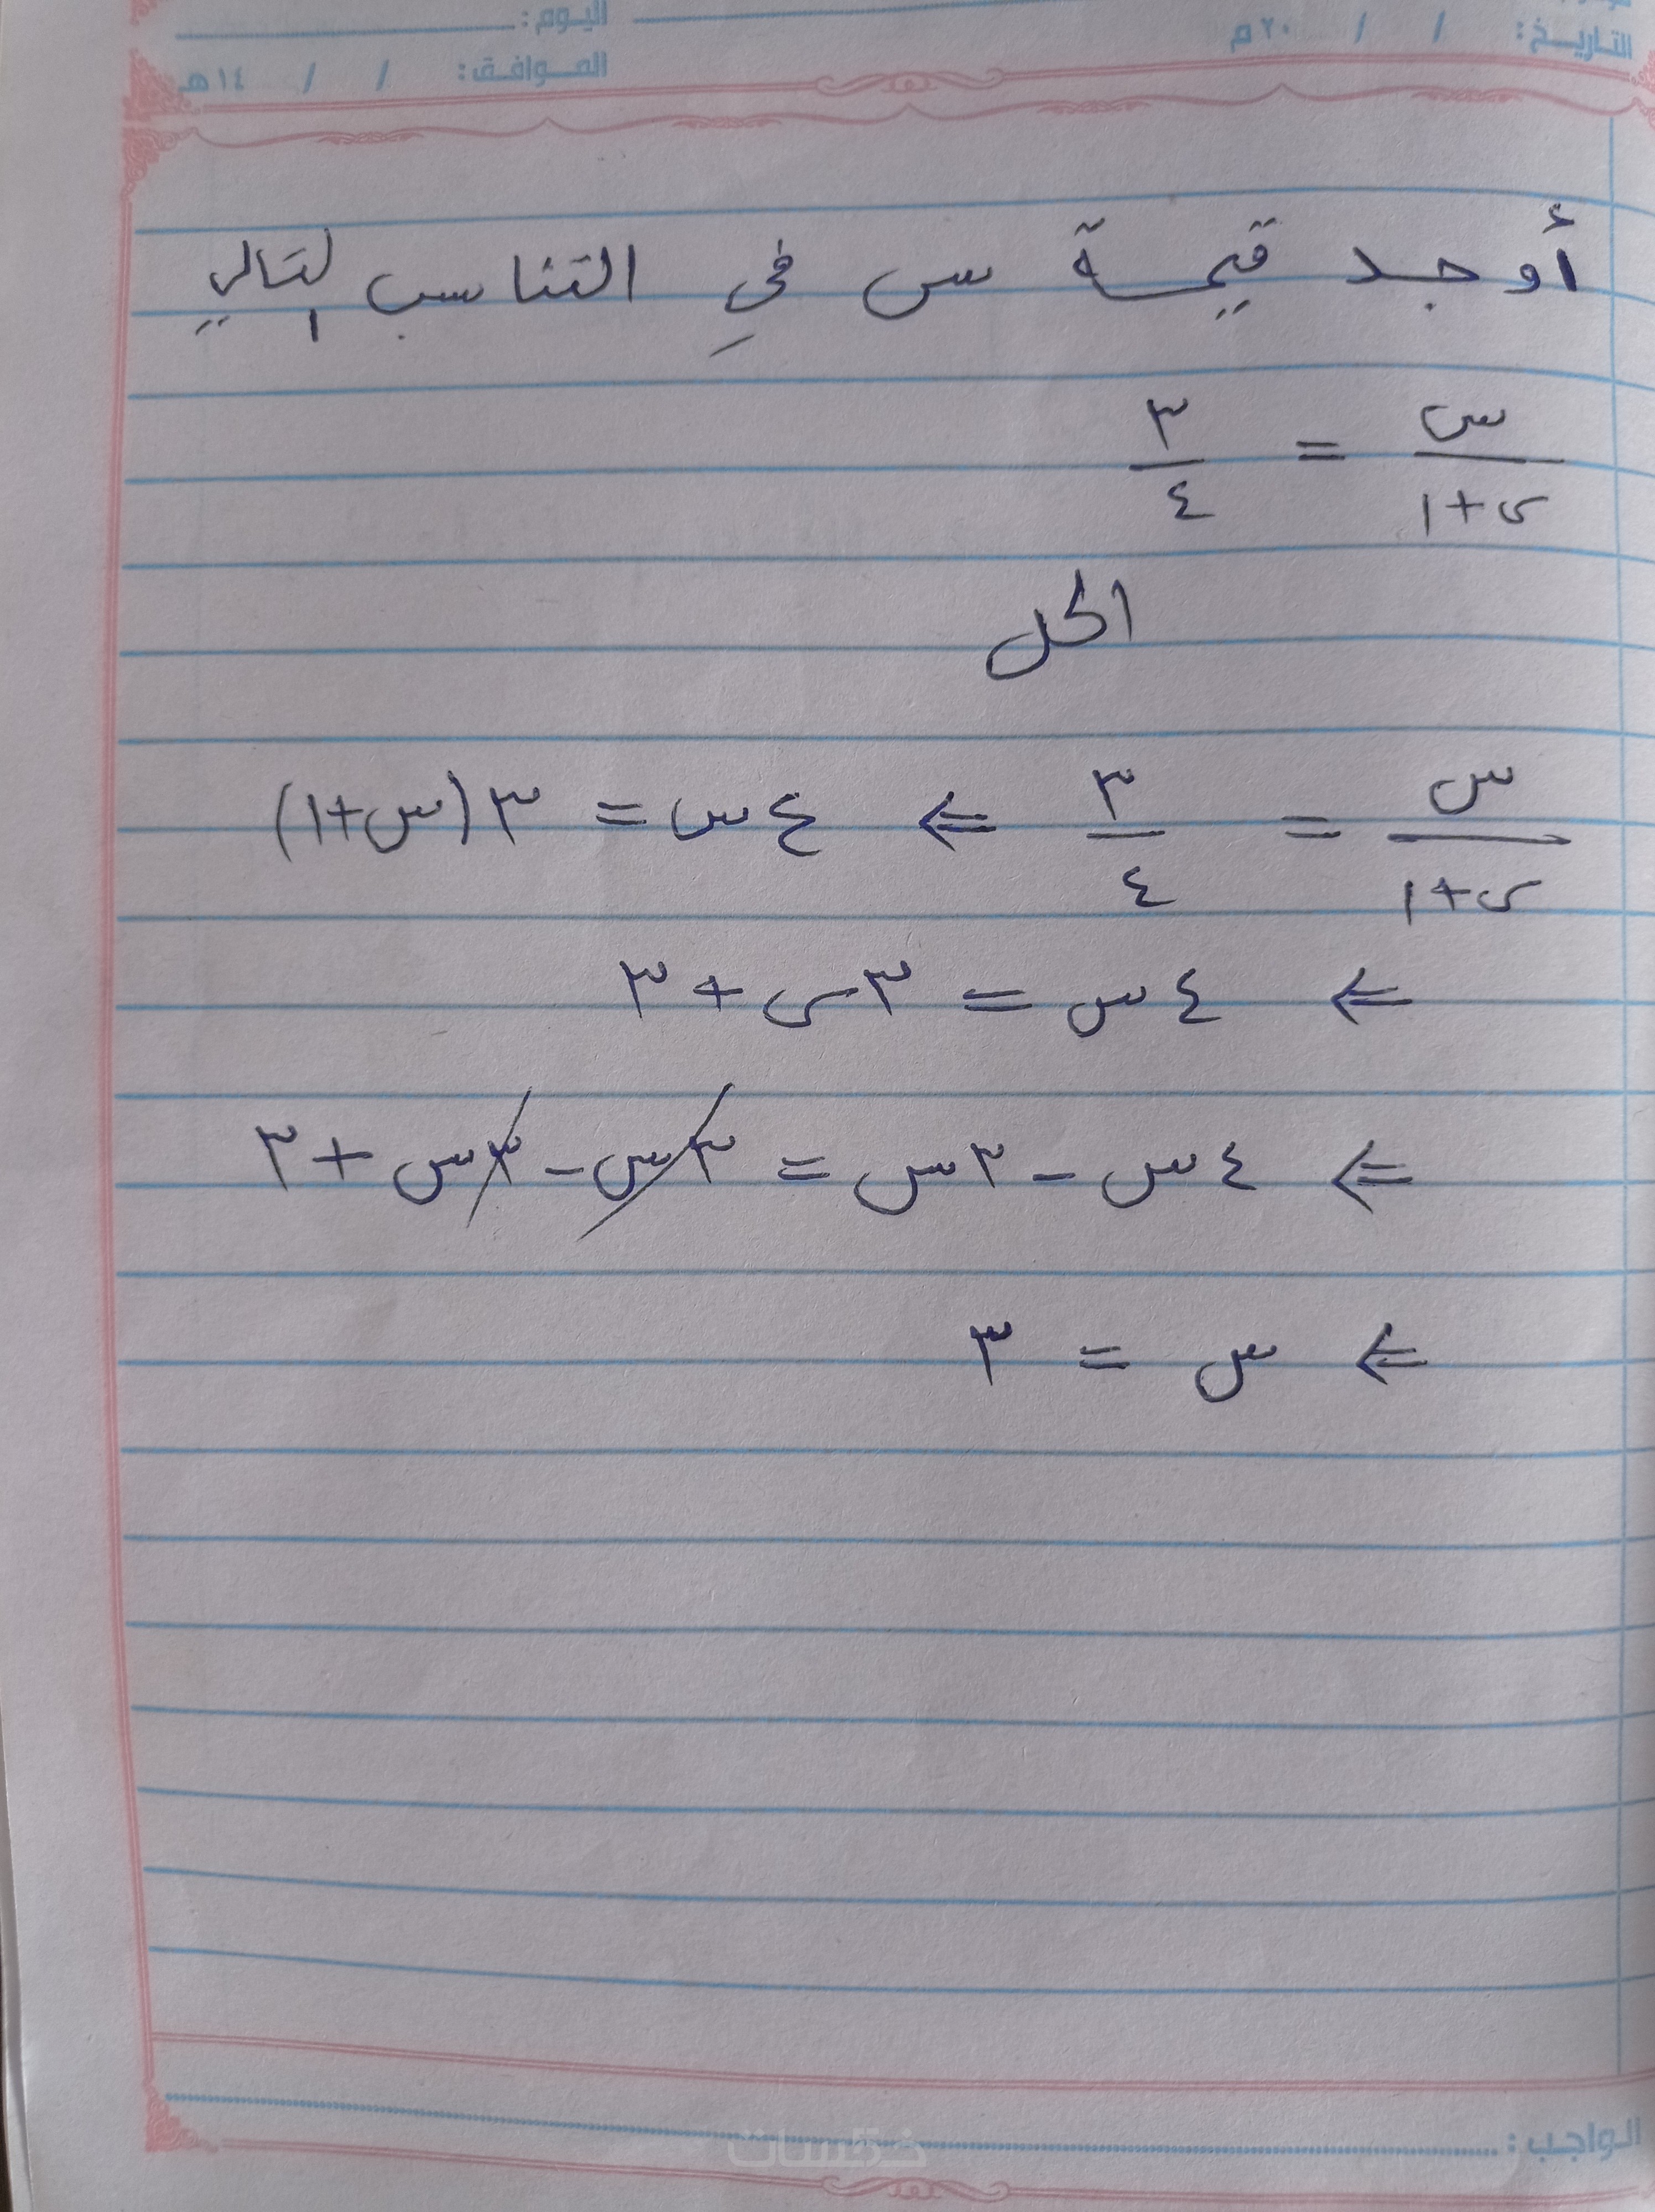 اليوم:
التاريخ: / / ٢٠ م
الموافق: / / ١٤ هـ
أوجد قيمة س في التناسب التالي
س/س+١ = ٣/٤
الحل
س/س+١ = ٣/٤ ⇐ ٤س = ٣(س+١)
⇐ ٤س = ٣س + ٣
⇐ ٤س - ٣س = ٣س - ٣س + ٣
⇐ س = ٣
الواجب:
خمسات